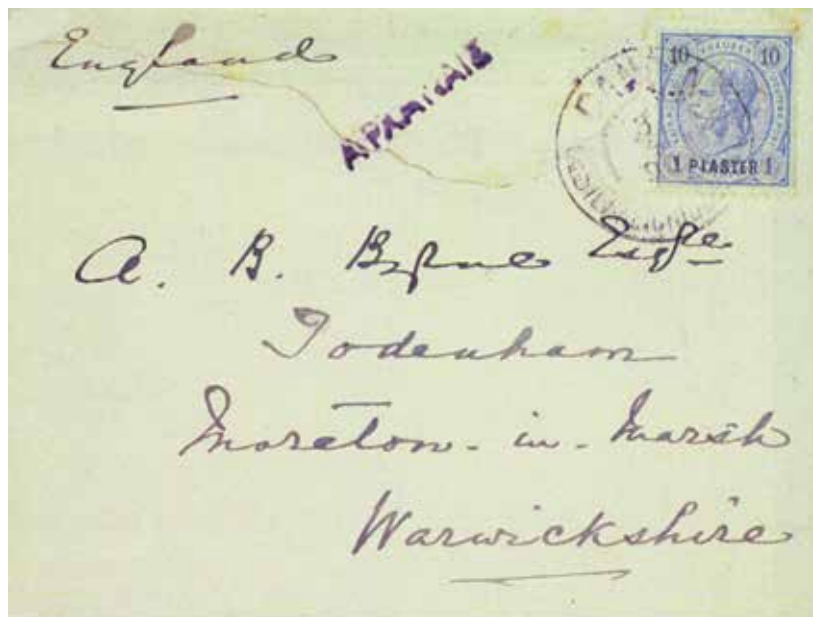 England
10 KREUZER 10
1 PIASTER 1
A. B. Byrne Esqre
Todenham
Moreton-in-Marsh
Warwickshire